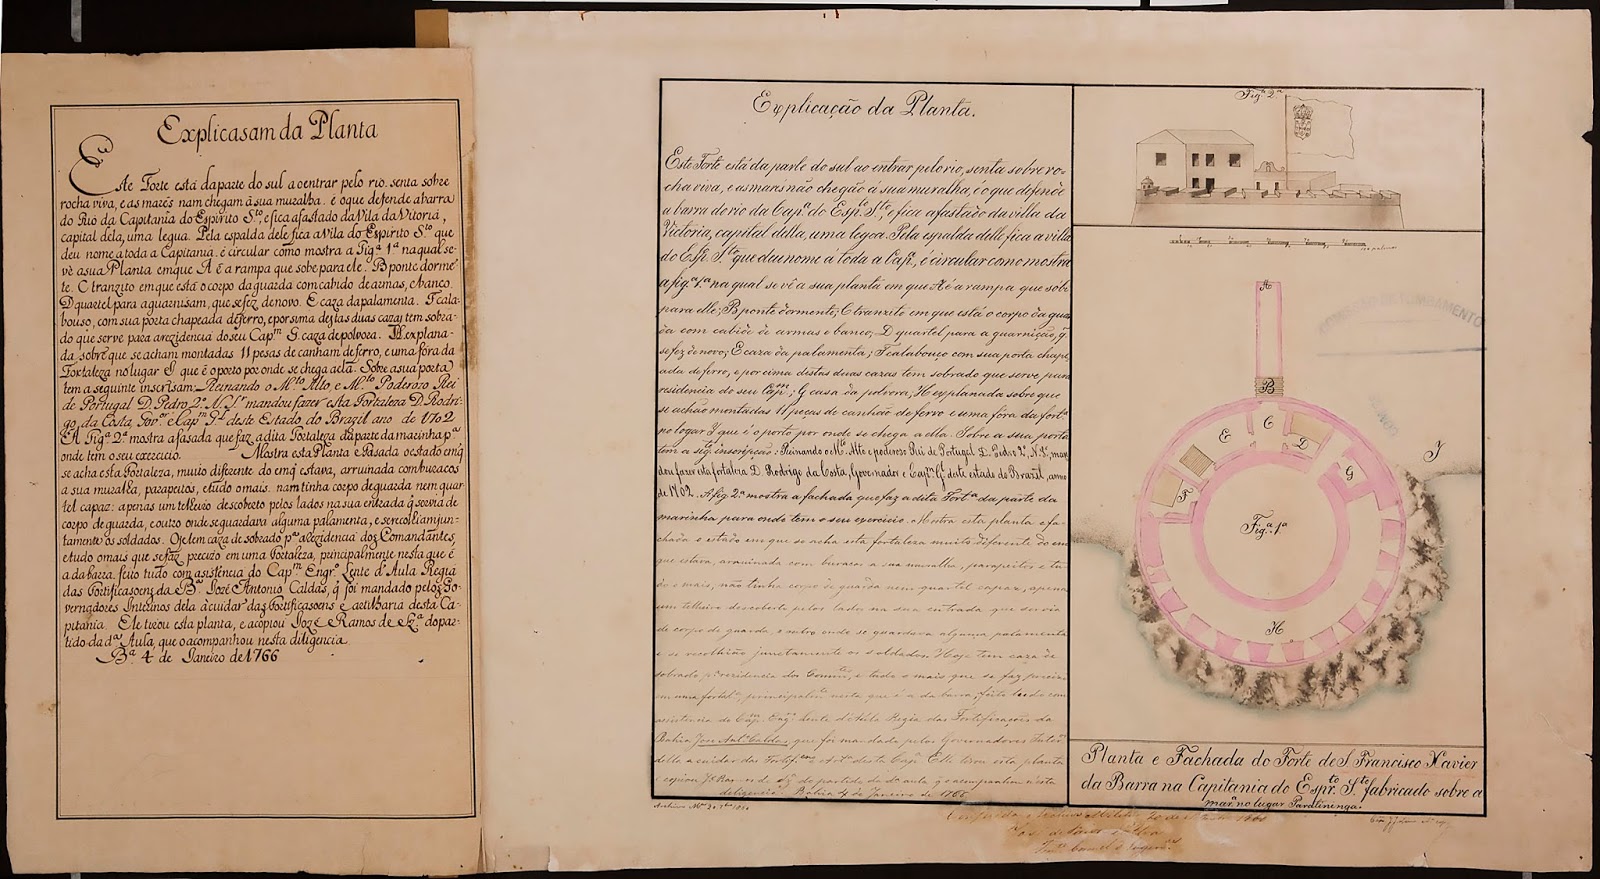 Explicasam da Planta
Este Forte está da parte do sul ao entrar pelo rio. senta sobre
rocha viva, e as marés nam chegam à sua muralha. é o que defende a barra
do Rio da Capitania do Espirito Sto, e fica afastado da Vila da Vitoria,
capital dela, uma legua. Pela espalda dele fica a Vila do Espirito Sto que
deu nome a toda a Capitania. é circular como mostra a Figa 1a na qual se
vè a sua Planta em que A é a rampa que sobe para ele. B ponte dorme
te. C tranzito em que está o corpo da guarda com cabido de armas, e banco.
D quartel para a guarnisam, que se fez de novo. E caza da palamenta. F cala-
bouso, com sua porta chapeada de ferro, e por sima destas duas cazas tem sobra-
do que serve para a rezidencia do seu Capm G. caza de polvora. H explana-
da, sobre que se acham montadas 11 pesas de canham de ferro, e uma fóra da
Fortaleza no lugar I que é o porto por onde se chega a ela. Sobre a sua porta
tem a seguinte inscrisam: Reinando o Mto Alto, e Mto Poderozo Rei
de Portugal D. Pedro 2o N. Sr mandou fazer esta Fortaleza D. Rodri-
go da Costa, Gor e Capm Gl deste Estado do Brazil ano de 1702
A Figa 2a mostra a fasada que faz a dita Fortaleza da parte da marinha pa
onde tem o seu exercicio. Mostra esta Planta e Fasada o estado em q
se acha esta Fortaleza, muito diferente do em q estava, arruinada com buracos
a sua muralha, parapeitos, e tudo o mais. nam tinha corpo de guarda nem quar
tel capaz: apenas um telheiro descoberto pelos lados na sua entrada q servia de
corpo de guarda, e outro onde se guardava alguma palamenta, e se recolliam jun-
tamente os soldados. Oje tem caza de sobrado pa a rezidencia dos Comandantes,
e tudo o mais que se faz precizo em uma Fortaleza, principalmente nesta que é
a da barra. feito tudo com asistencia do Capm Engro Lente d'Aula Regia
das Fortificasoens da Ba Jozé Antonio Caldas, q foi mandado pelos Go-
vernadores Interinos dela a cuidar das Fortificasoens e artilharia desta Ca-
pitania. Ele tirou esta planta, e a copiou Jozé Ramos de Sza do par-
tido da da Aula, que o acompanhou nesta diligencia.
Ba 4 de Janeiro de 1766
Explicação da Planta.
Este Forte está da parte do sul ao entrar pelo rio, senta sobre ro-
cha viva, e as mares não chegão á sua muralha, é o que defende
a barra do rio da Capa do Espo Sto, e fica afastado da villa da
Victoria, capital della, uma legoa. Pela espalda delle fica a villa
do Esp. Sto que deu nome á toda a Capa, é circular como mostra
a figa 1a na qual se vê a sua planta em que A é a rampa que sobe
para elle; B ponte dormente; C transito em que está o corpo da guar
da com cabide de armas e banco; D quartel para a guarnição, q
se fez de novo; E caza da palamenta; F calabouço com sua porta chape
ada de ferro, e por cima destas duas cazas tem sobrado que serve para
residencia do seu Capm; G casa da polvora; H explanada sobre que
se achão montadas 11 peças de canhão de ferro e uma fóra da forta
no logar Y que é o porto por onde se chega a ella. Sobre a sua porta
tem a sega inscripção: Reinando o Mto Alto e poderozo Rei de Portugal D. Pedro 2o, N. Sr, man
dou fazer esta fortaleza D. Rodrigo da Costa, Governador e Capm Gl deste estado do Brazil, anno
de 1702. A fig 2a mostra a fachada que faz a dita Forta da parte da
marinha para onde tem o seu exercicio. Mostra esta planta e fa-
chada o estado em que se acha esta fortaleza muito differente do em
que estava, arruinada com buracos a sua muralha, parapeitos e tu
do o mais, não tinha corpo de guarda nem quartel capaz, apenas
um telheiro descoberto pelos lados na sua entrada que servia
de corpo de guarda, e outro onde se guardava alguma palamenta
e se recolhião junctamente os soldados. Hoje tem caza de
sobrado pa residencia dos Commtes, e tudo o mais que se faz preciso
em uma fortala, principalmte nesta que é a da barra; feito tudo com
assistencia do Capm Engo Lente d'Aula Regia das Fortificações da
Bahia José Anto Caldas, que foi mandado pelos Governadores Inter
della a cuidar das Fortifições Arta desta Capa. Elle tirou esta planta
e copiou Je Ramos de Sza do partido da da aula q o acompanhou nesta
deligencia. Bahia 4 de Janeiro de 1766
Figa 2a
A
B
C
E
D
G
F
Y
Figa 1a
H
COMISSÃO DE TOMBAMENTO
Planta e Fachada do Forte de S. Francisco Xavier
da Barra na Capitania do Espto Sto fabricado sobre a
mara no lugar Paratininga.